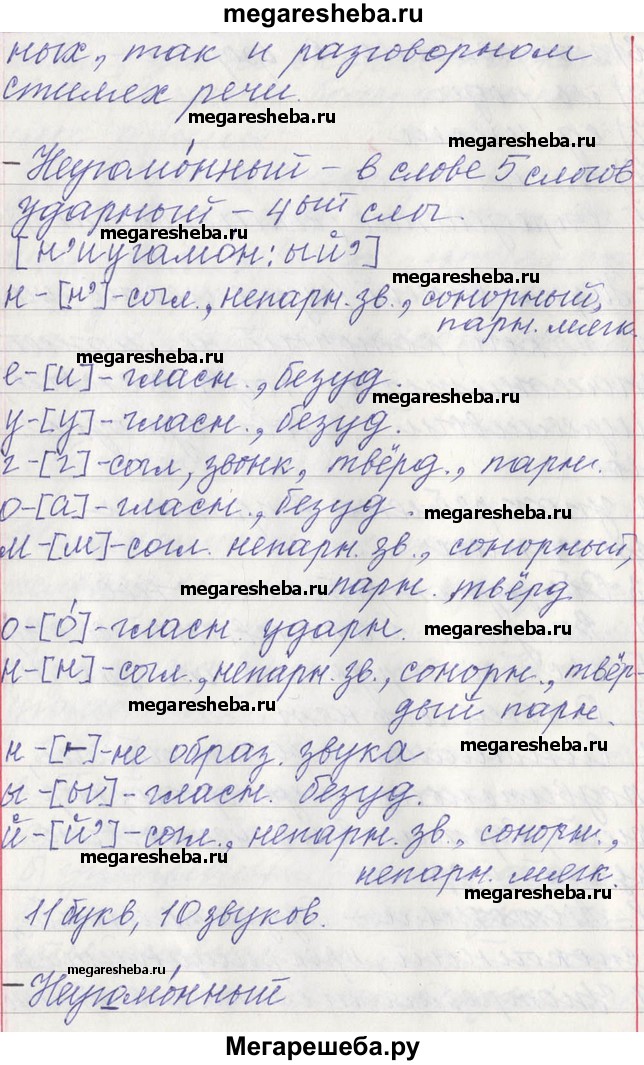 megaresheba.ru
ных, так и разговорном
стилех речи.
megaresheba.ru
megaresheba.ru
- Неугамо́нный - в слове 5 слогов
ударный - 4ый слог.
megaresheba.ru
[н’иугамон:ый’]
megaresheba.ru
н-[н’]-согл., непарн. зв., сонорный,
парн. мягк.
megaresheba.ru
е-[и]-гласн., безуд.
megaresheba.ru
у-[у]-гласн., безуд.
г-[г]-согл, звонк, твёрд., парн.
о-[а]-гласн., безуд.
megaresheba.ru
м-[м]-согл. непарн. зв., сонорный,
megaresheba.ru парн. твёрд
о-[о́]-гласн. ударн.
megaresheba.ru
н-[н]-согл., непарн. зв., сонорн., твёр-
дый парн.
н-[-]-не образ. звука
megaresheba.ru
ы-[ы]-гласн. безуд.
й-[й’]-согл., непарн. зв., сонорн.,
megaresheba.ru
непарн. мягк.
megaresheba.ru
11 букв, 10 звуков.
megaresheba.ru
megaresheba.ru
- Неугамо́нный
Мегарешеба.ру